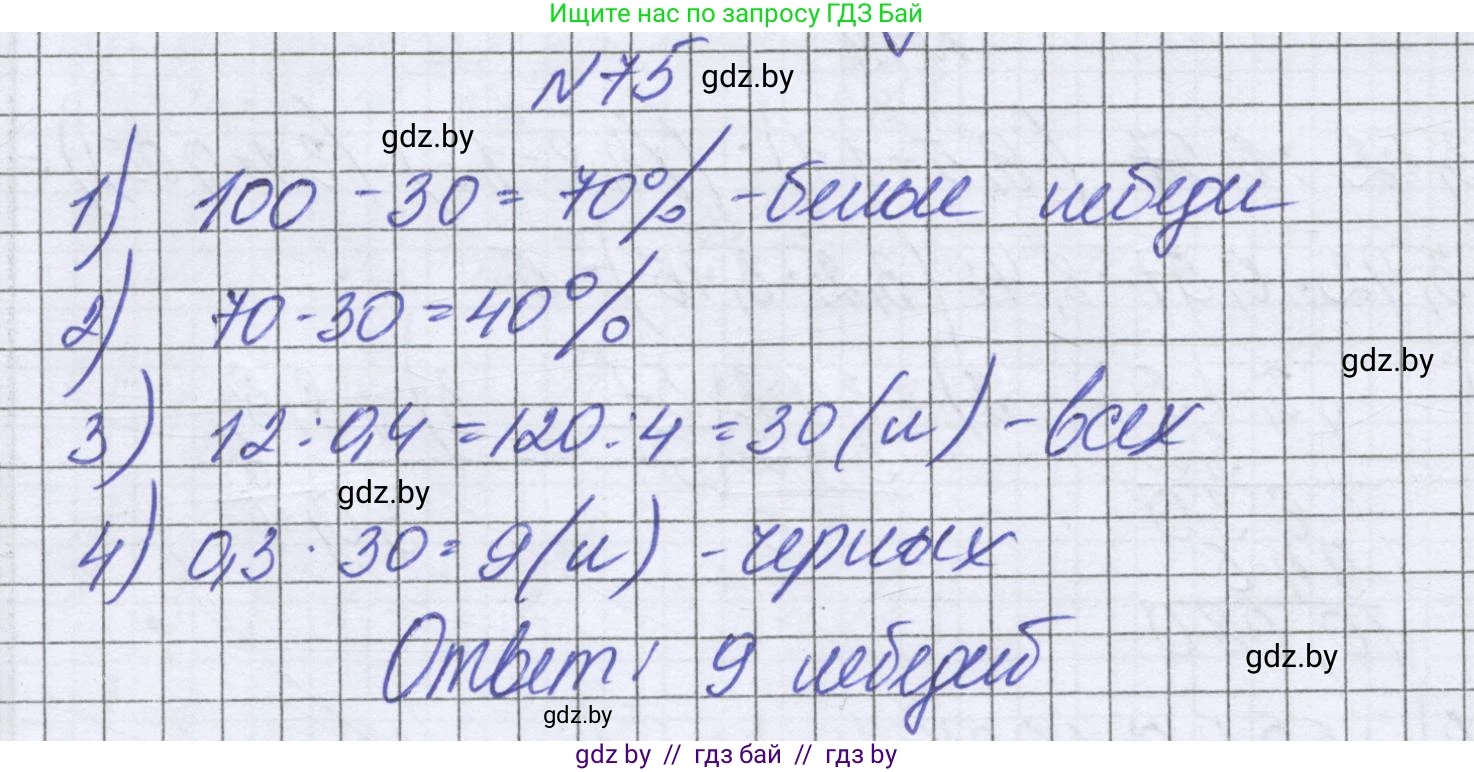 Ищите нас по запросу ГДЗ Бай
№75 gdz.by
gdz.by
1) 100 - 30 = 70% - белые лебеди
2) 70 - 30 = 40%
gdz.by
3) 12 : 0,4 = 120 : 4 = 30 (л) - всех
gdz.by
4) 0,3 · 30 = 9 (л) - черных
Ответ: 9 лебедей
gdz.by
gdz.by
gdz by // гдз бай // гдз by